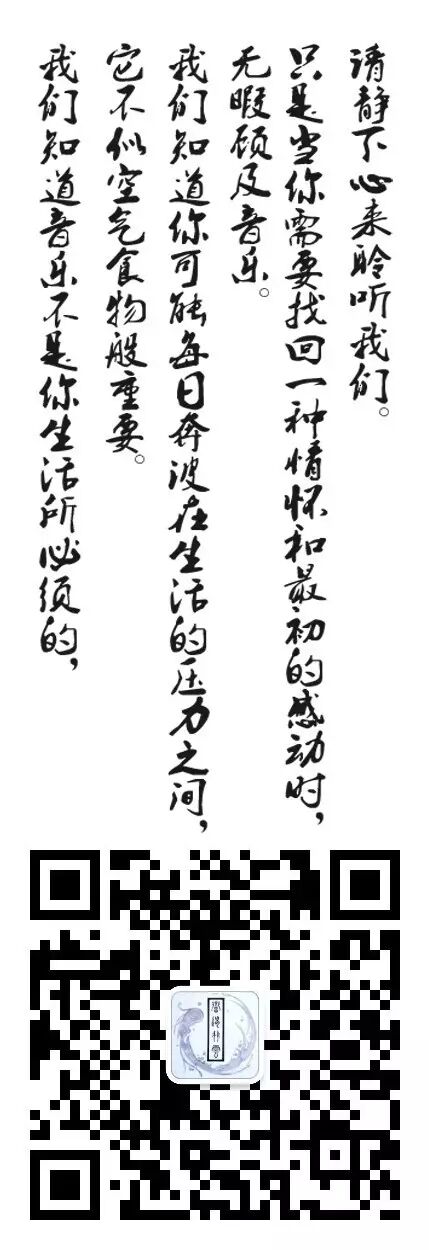 我们知道音乐不是你生活所必须的，
它不似空气食物般重要。
我们知道你可能每日奔波在生活的压力之间，
无暇顾及音乐。
只是当你需要找回一种情怀和最初的感动时，
请静下心来聆听我们。